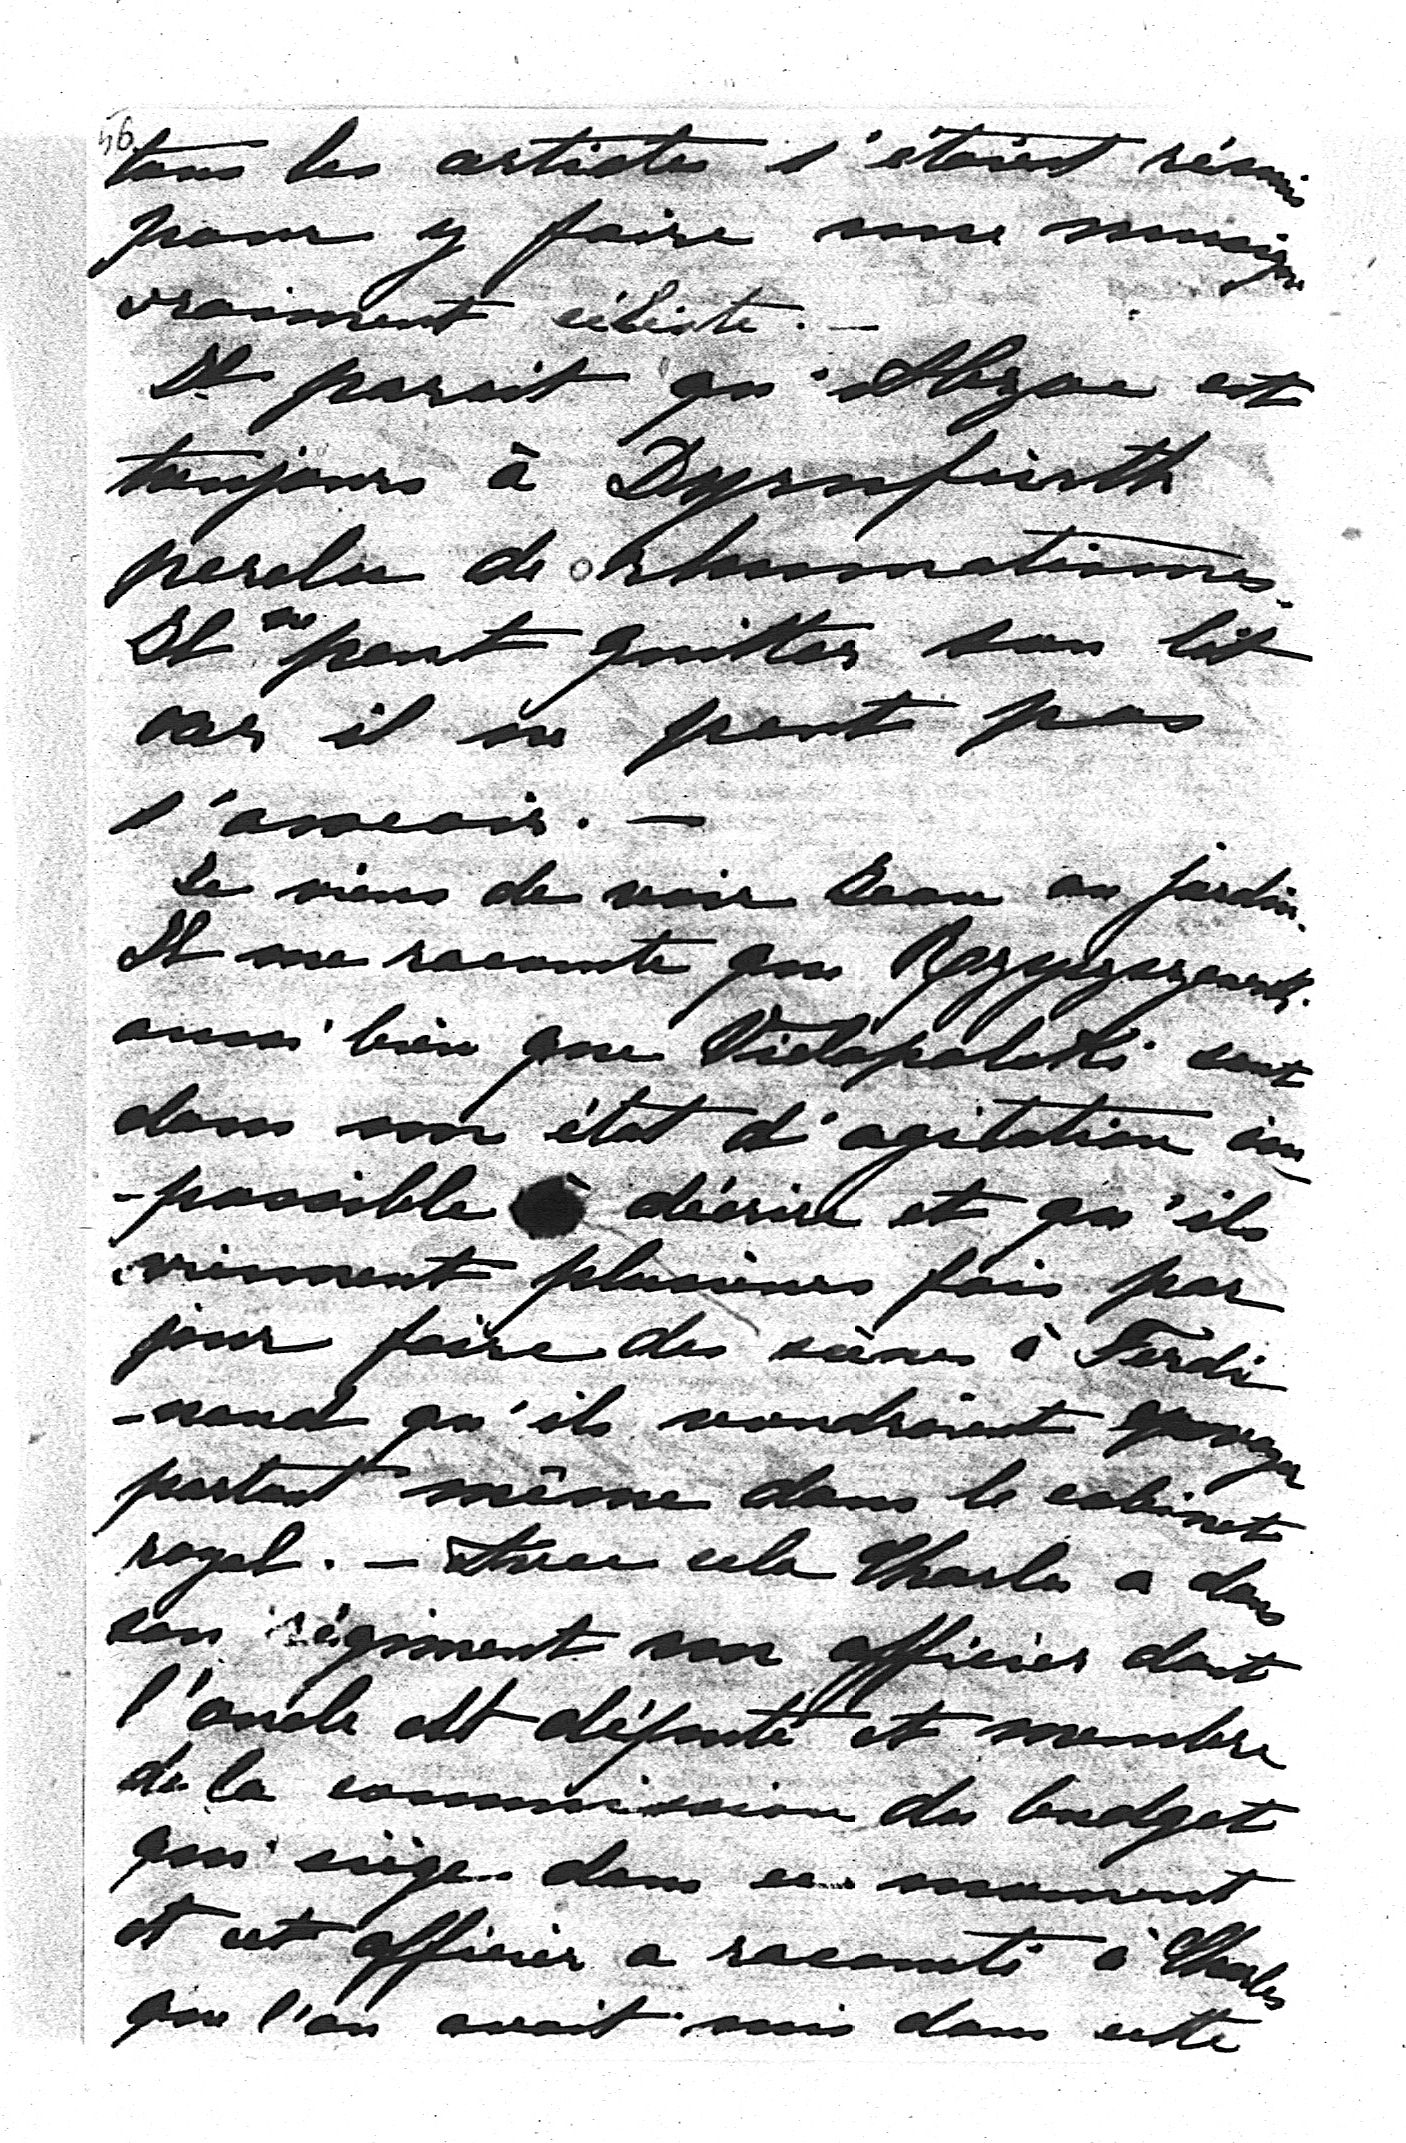 56
tous les artistes s'étaient réunis
pour y faire une musique
vraiment céleste. —
Il parait qu'
est
toujours à Dyrnfürth
perclu de rhumatismes.
Il ne peut quitter son lit
car il ne peut pas
s'asseoir. —
Je viens de voir Jean au jardin.
Il me raconte que
aussi bien que Vielopolski sont
dans un état d'agitation im
-possible à décrire et qu'ils
viennent plusieurs fois par
jour faire des scènes à Ferdi
-nand qu'ils voudraient
partout même dans le cabinet
royal. — Avec cela Charles a dans
son régiment un officier dont
l'oncle est député et membre
de la commission du budget
qui siège dans ce moment
et cet officier a raconté à Charles
que l'on avait mis dans cette